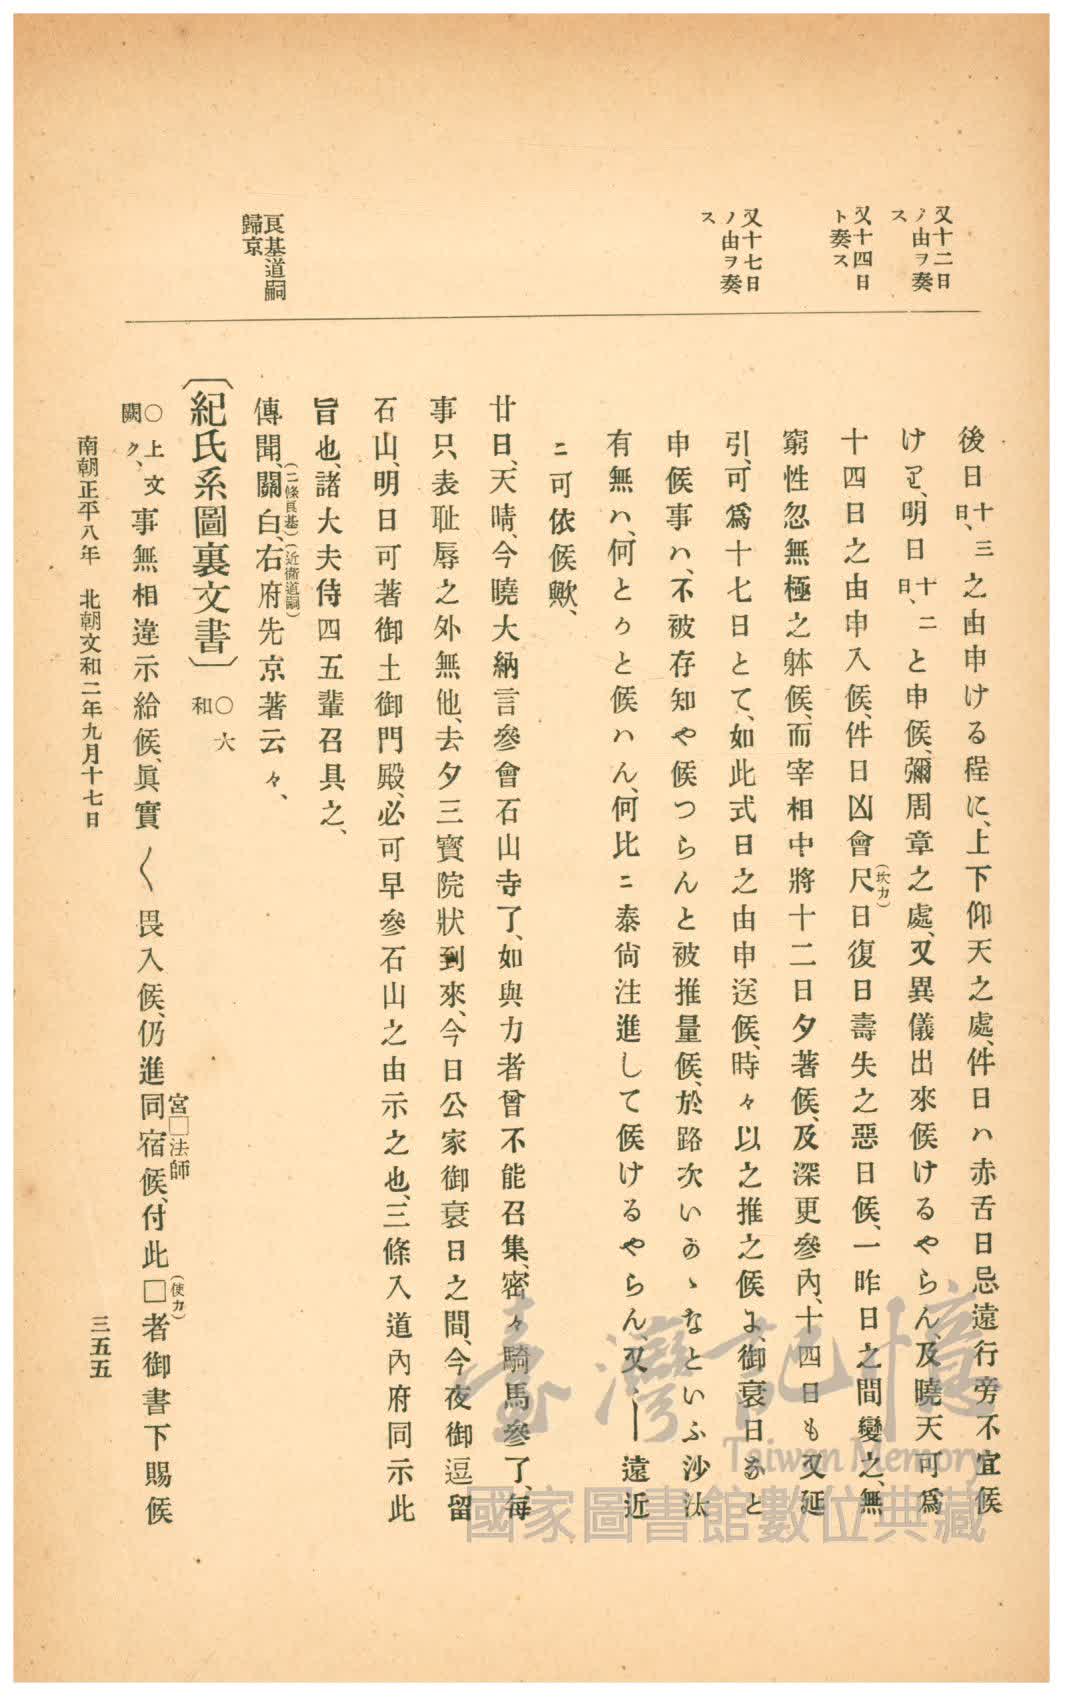 又十二日
ノ由ヲ奏
ス
又十四日
ト奏ス
又十七日
ノ由ヲ奏
ス
良基道嗣
歸京
後日十三日、之由申ける程に、上下仰天之處、件日ハ赤舌日忌遠行旁不宜候
けて、明日十二日、と申候、彌周章之處、又異儀出來候けるやらん、及曉天可爲
十四日之由申入候、件日凶會尺(坎カ)日復日壽失之惡日候、一昨日之間變之、無
窮性忽無極之躰候、而宰相中將十二日夕著候、及深更參內、十四日も又延
引、可爲十七日とて、如此式日之由申送候、時々以之推之候よ、御衰日なと
申候事ハ、不被存知や候つらんと被推量候、於路次いかゝなといふ沙汰
有無ハ、何とかと候ハん、何比ニ泰尙注進して候けるやらん、又〻―遠近
ニ可依候歟、
廿日、天晴、今曉大納言參會石山寺了、如與力者曾不能召集、密々騎馬參了、每
事只表耻辱之外無他、去夕三寳院狀到來、今日公家御衰日之間、今夜御逗留
石山、明日可著御土御門殿、必可早參石山之由示之也、三條入道內府同示此
旨也、諸大夫侍四五輩召具之、
傳聞、關白、(二條良基)右府(近衞道嗣)先京著云々、
〔紀氏系圖裏文書〕○大和
○上文闕ク、事無相違示給候、眞實〱畏入候、仍進同宿候、宮□法師付此□(使カ)者御書下賜候
南朝正平八年 北朝文和二年九月十七日
三五五
臺灣記憶
Taiwan Memory
國家圖書館數位典藏